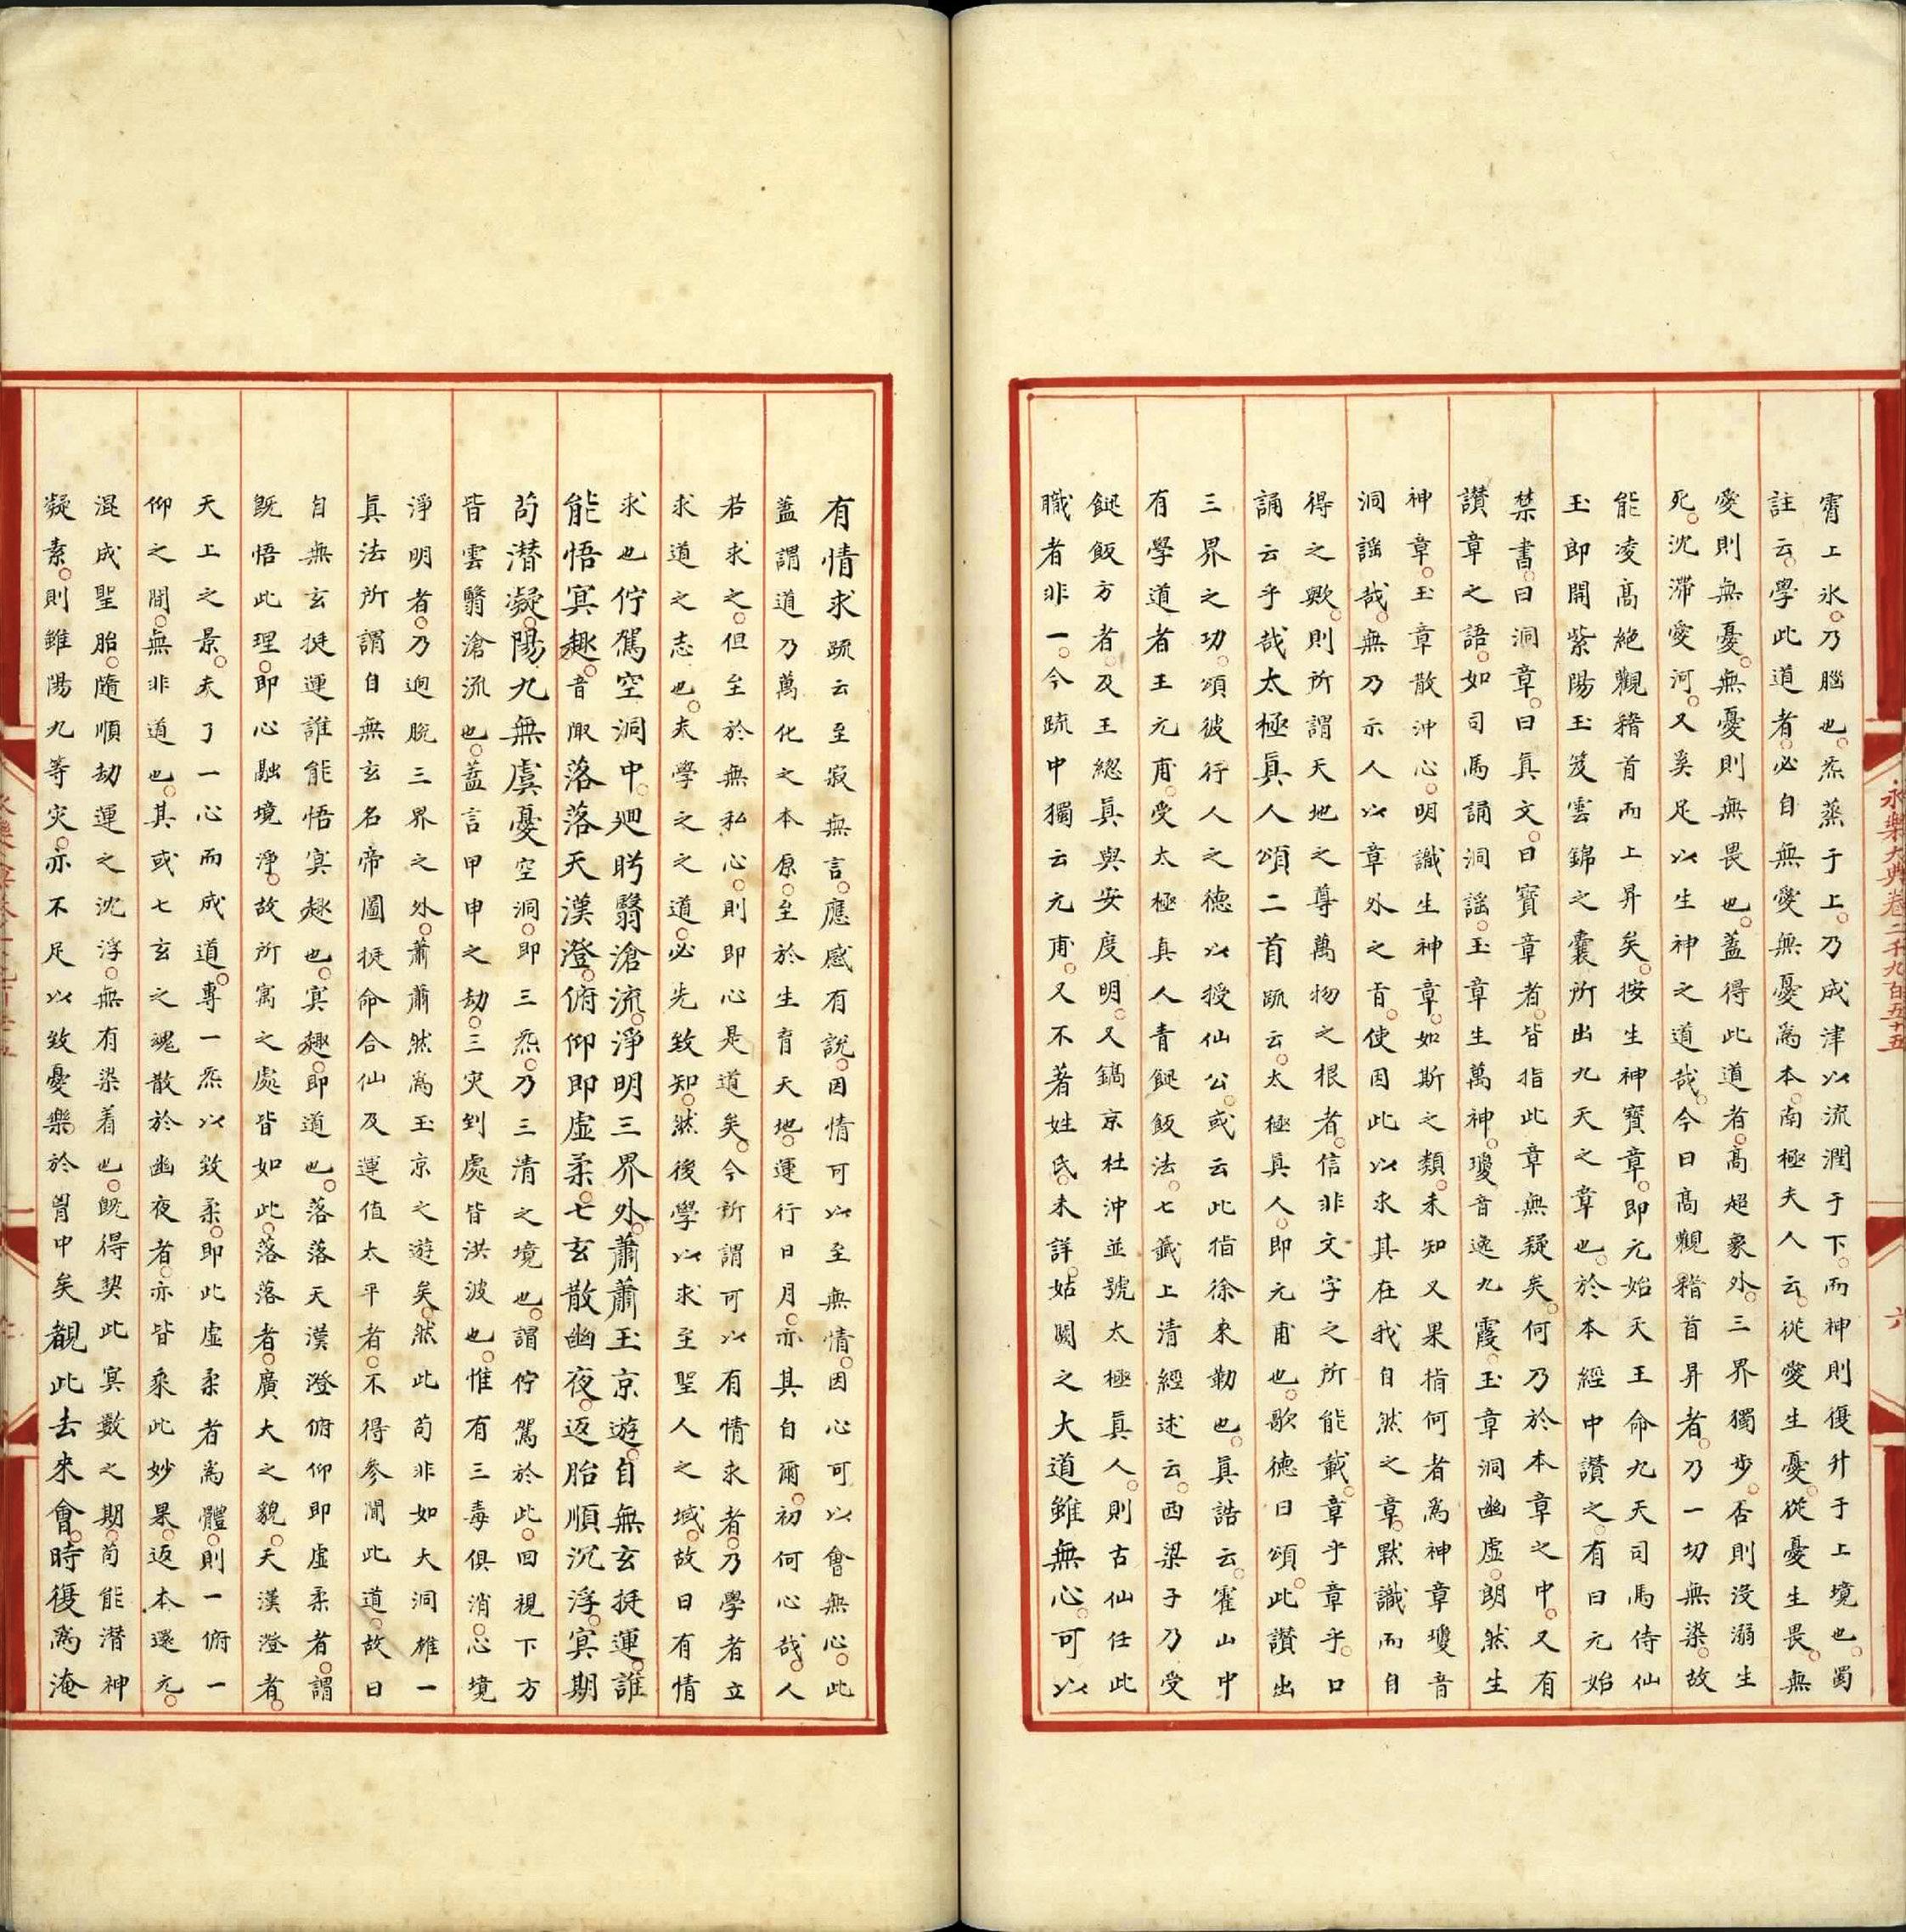 霄上氷乃腦也炁蒸于上乃成津以流潤于下而神則復升于上境也蜀
註云學此道者必自無愛無憂爲本南極夫人云從愛生憂從憂生畏無
愛則無憂無憂則無畏也蓋得此道者高超象外三界獨步否則没溺生
死沈滯愛河又奚足以生神之道哉今日高觀稽首昇者乃一切無染故
能凌高絶觀稽首而上昇矣按生神寶章即元始天王命九天司馬侍仙
玉郎開紫陽玉笈雲錦之囊所出九天之章也於本經中讃之有曰元始
禁書曰洞章曰真文曰寶章者皆指此章無疑矣何乃於本章之中又有
讃章之語如司馬誦洞謡玉章生萬神瓊音逸九霞玉章洞幽虚朗然生
神章玉章散沖心明識生神章如斯之類未知又果指何者爲神章瓊音
洞謡哉無乃示人以章外之旨使因此以求其在我自然之章默識而自
得之歟則所謂天地之尊萬物之根者信非文字之所能載章乎章乎口
誦云乎哉太極真人頌二首䟽云太極真人即元甫也歌德曰頌此讃出
三界之功頌彼行人之德以授仙公或云此指徐來勒也真誥云霍山中
有學道者王元甫受太極真人青䭀飯法七籤上清經述云西梁子乃受
䭀飯方者及王總真與安度明又鎬京杜沖並號太極真人則古仙任此
職者非一今疏中獨云元甫又不著姓氏未詳姑闕之大道雖無心可以
有情求疏云至寂無言應感有説因情可以至無情因心可以會無心此
蓋謂道乃萬化之本原至於生育天地運行日月亦其自爾初何心哉人
若求之但至於無私心則即心是道矣今所謂可以有情求者乃學者立
求道之志也夫學之之道必先致知然後學以求至聖人之域故曰有情
求也佇駕空洞中廻眄翳滄流淨明三界外蕭蕭玉京遊自無玄挺運誰
能悟冥趣音陬落落天漢澄俯仰即虚柔七玄散幽夜返胎順沉浮冥期
苟潛凝陽九無虞憂空洞即三炁乃三清之境也謂佇駕於此回視下方
皆雲翳滄流也蓋言甲申之劫三灾到處皆洪波也惟有三毒俱消心境
淨明者乃逈脫三界之外蕭蕭然爲玉京之遊矣然此苟非如大洞雄一
真法所謂自無玄名帝圖挺命合仙及運值太平者不得參聞此道故曰
自無玄挺運誰能悟冥趣也冥趣即道也落落天漢澄俯仰即虚柔者謂
旣悟此理即心融境淨故所寓之處皆如此落落者廣大之貌天漢澄者
天上之景夫了一心而成道專一炁以致柔即此虚柔者爲體則一俯一
仰之間無非道也其或七玄之魂散於幽夜者亦皆乘此妙果返本還元
混成聖胎隨順劫運之沈浮無有染着也旣得契此冥數之期苟能潛神
凝素則雖陽九等灾亦不足以致憂樂於胷中矣覩此去來會時復爲淹
永樂大典卷二千九百五十五
六